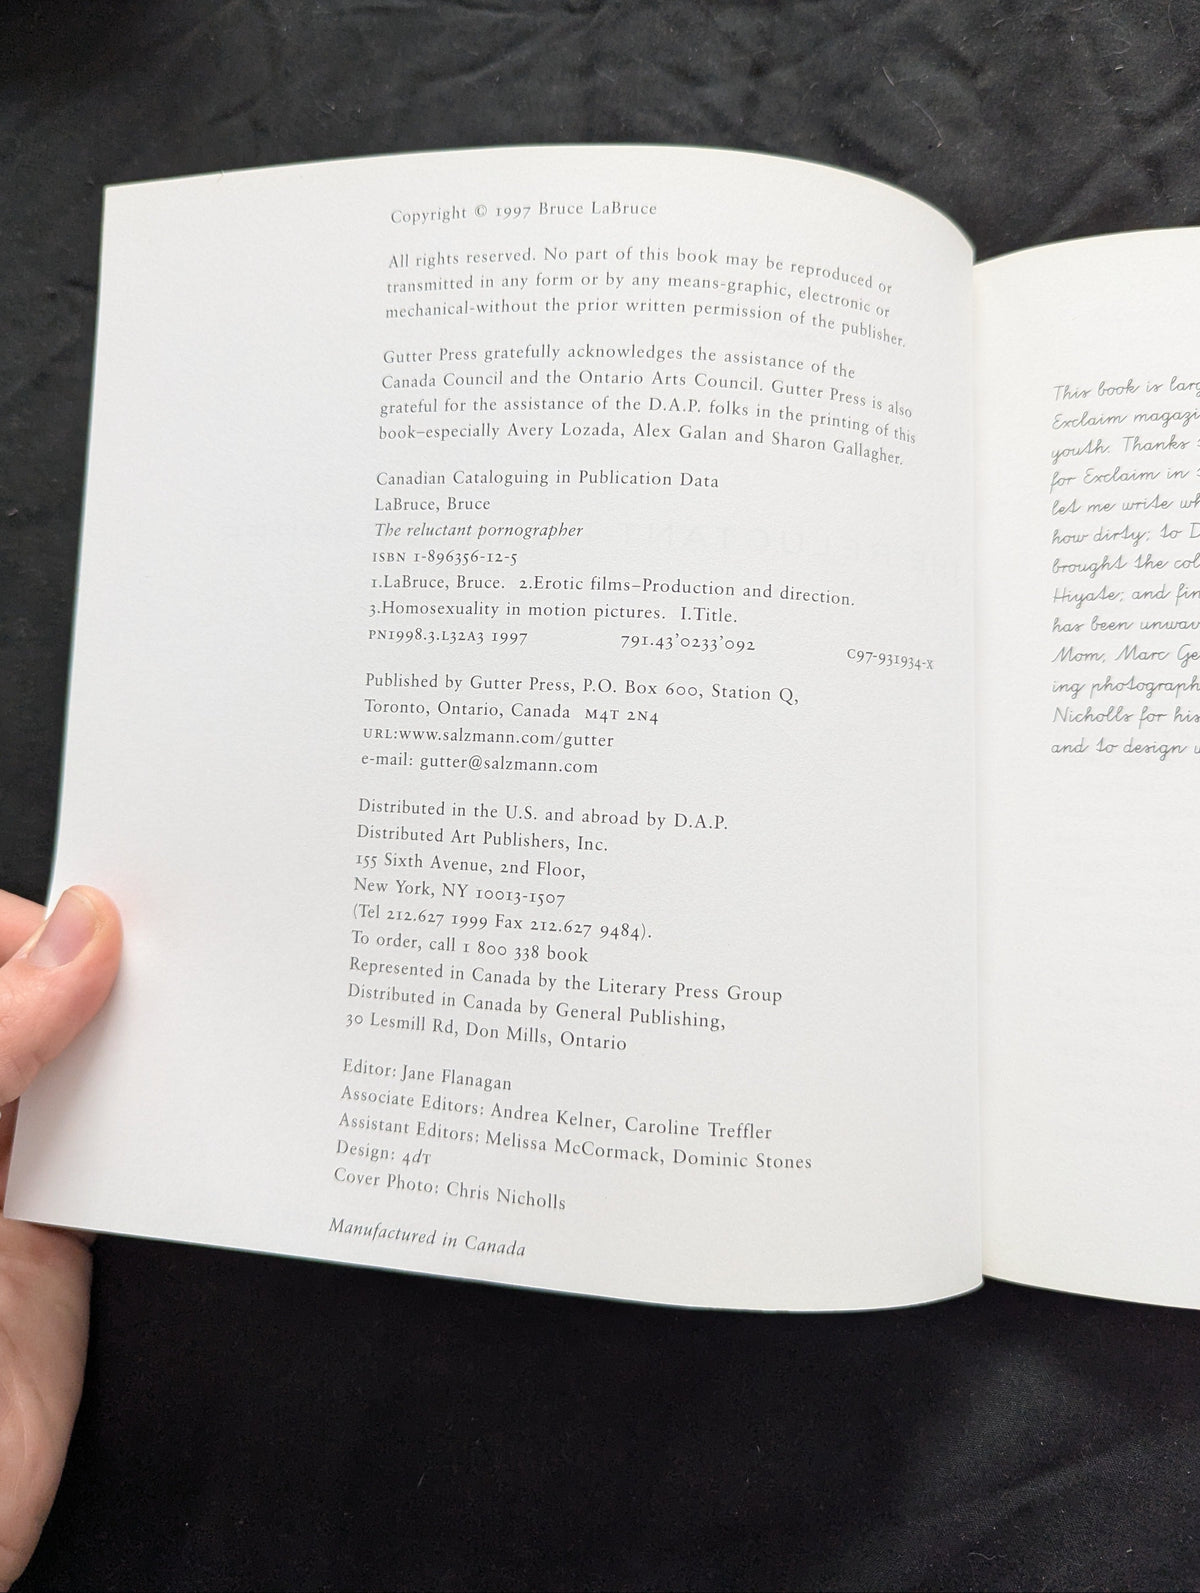 Copyright © 1997 Bruce LaBruce
All rights reserved. No part of this book may be reproduced or
transmitted in any form or by any means-graphic, electronic or
mechanical-without the prior written permission of the publisher.
Gutter Press gratefully acknowledges the assistance of the
Canada Council and the Ontario Arts Council. Gutter Press is also
grateful for the assistance of the D.A.P. folks in the printing of this
book–especially Avery Lozada, Alex Galan and Sharon Gallagher.
Canadian Cataloguing in Publication Data
LaBruce, Bruce
The reluctant pornographer
ISBN 1-896356-12-5
1.LaBruce, Bruce. 2.Erotic films–Production and direction.
3.Homosexuality in motion pictures. I.Title.
PN1998.3.L32A3 1997 791.43'0233'092 C97-931934-X
Published by Gutter Press, P.O. Box 600, Station Q,
Toronto, Ontario, Canada M4T 2N4
URL:www.salzmann.com/gutter
e-mail: gutter@salzmann.com
Distributed in the U.S. and abroad by D.A.P.
Distributed Art Publishers, Inc.
155 Sixth Avenue, 2nd Floor,
New York, NY 10013-1507
(Tel 212.627 1999 Fax 212.627 9484).
To order, call 1 800 338 book
Represented in Canada by the Literary Press Group
Distributed in Canada by General Publishing,
30 Lesmill Rd, Don Mills, Ontario
Editor: Jane Flanagan
Associate Editors: Andrea Kelner, Caroline Treffler
Assistant Editors: Melissa McCormack, Dominic Stones
Design: 4dT
Cover Photo: Chris Nicholls
Manufactured in Canada
This book is
Exclaim
youth. Thanks
for Exclaim in
let me write
how dirty; to
brought the
Hiyate; and
has been
Mom, Marc
ing
Nicholls for his
and to design